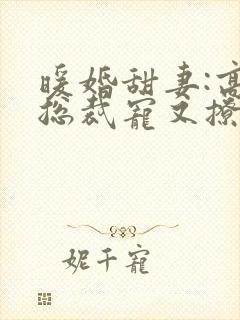 暖婚甜妻:高
总裁宠又撩
妮千宠